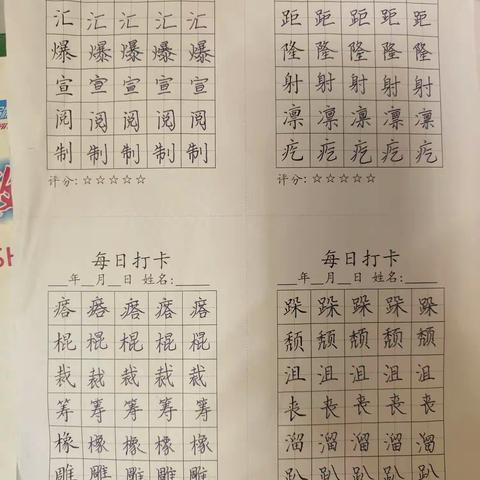 汇 汇 汇 汇 汇
爆 爆 爆 爆 爆
宣 宣 宣 宣 宣
阅 阅 阅 阅 阅
制 制 制 制 制
评分:☆☆☆☆☆
距 距 距 距 距
隆 隆 隆 隆 隆
射 射 射 射 射
凛 凛 凛 凛 凛
疙 疙 疙 疙 疙
评分:☆☆☆☆☆
每日打卡
__年__月__日 姓名:____
瘩 瘩 瘩 瘩 瘩
棍 棍 棍 棍 棍
裁 裁 裁 裁 裁
筹 筹 筹 筹 筹
橡 橡 橡 橡 橡
雕 雕 雕 雕 雕
每日打卡
__年__月__日 姓名:____
跺 跺 跺 跺 跺
颓 颓 颓 颓 颓
沮 沮 沮 沮 沮
丧 丧 丧 丧 丧
溜 溜 溜 溜 溜
趴 趴 趴 趴 趴